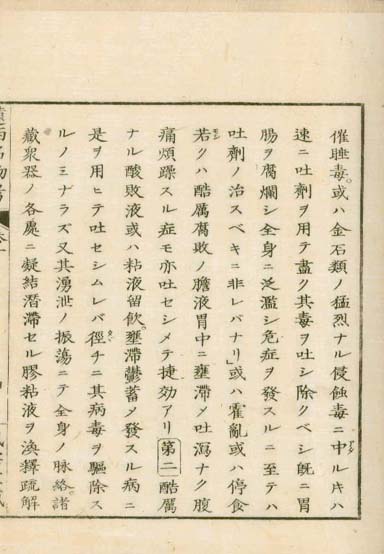 催睡毒。或ハ金石類ノ猛烈ナル侵蝕毒ニ中ルキハ
速ニ吐劑ヲ用テ盡ク其毒ヲ吐シ除クベシ既ニ胃
腸ヲ腐爛シ全身ニ泛濫シ危症ヲ發スルニ至テハ
吐劑ノ治スベキニ非レバナリ」或ハ霍亂或ハ停食
若クハ酷厲腐敗ノ膽液胃中ニ壅滯メ吐瀉ナク腹
痛煩躁スル症モ亦吐セシメテ捷効アリ 第二 酷厲
ナル酸敗液或ハ粘液留飲。壅滯鬱蓄メ發スル病ニ
是ヲ用ヒテ吐セシムレバ徑チニ其病毒ヲ驅除ス
ルノミナラズ又其湧泄ノ振蕩ニテ全身ノ脉絡諸
藏衆器ノ各處ニ凝結潛滯セル膠粘液ヲ渙釋疏解